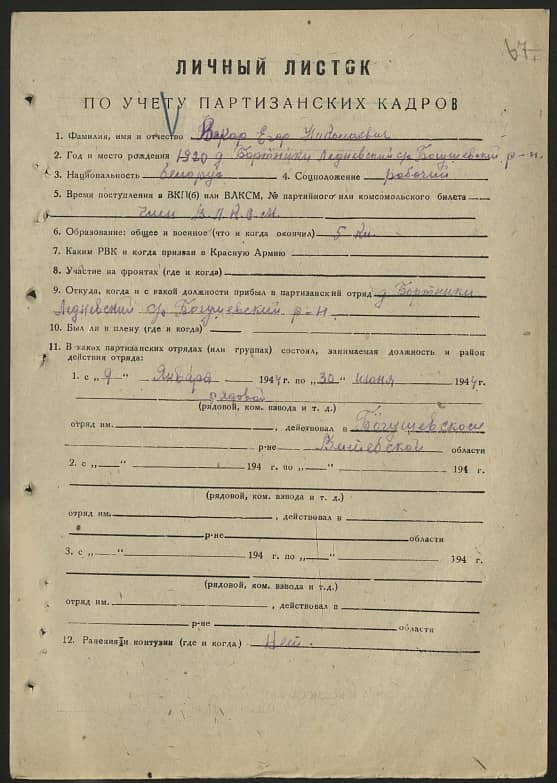 67.
ЛИЧНЫЙ ЛИСТОК
ПО УЧЕТУ ПАРТИЗАНСКИХ КАДРОВ
1. Фамилия, имя и отчество Егор Николаевич
2. Год и место рождения 1920 д Бортники Ледневский с/с Богушевский р-н.
3. Национальность белорус 4. Соцположение рабочий
5. Время поступления в ВКП(б) или ВЛКСМ, № партийного или комсомольского билета
член
6. Образование: общее и военное (что и когда окончил) 5 кл.
7. Каким РВК и когда призван в Красную Армию
8. Участие на фронтах (где и когда)
9. Откуда, когда и с какой должности прибыл в партизанский отряд д Бортники
Ледневский с/с Богушевский р-н
10. Был ли в плену (где и когда)
11. В каких партизанских отрядах (или группах) состоял, занимаемая должность и район
действия отряда:
1. с „9“ Января 1944 г. по „30“ июня 1944 г.
рядовой
(рядовой, ком. взвода и т. д.)
отряд им. , действовал в Богушевском
р-не Витебской области
2. с „ “ 194 г. по „ “ 194 г.
(рядовой, ком. взвода и т. д.)
отряд им. , действовал в
р-не области
3. с „ “ 194 г. по „ “ 194 г.
(рядовой, ком. взвода и т.д.)
отряд им. , действовал в
р-не области
12. Ранения и контузии (где и когда) Нет.